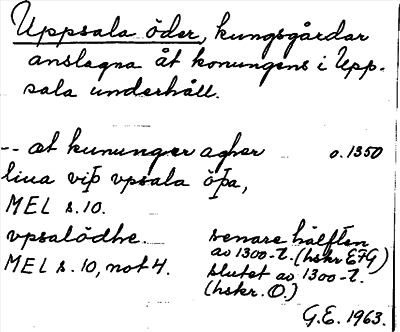 Uppsala öder, kungsgårdar
anslagna åt konungens i Upp-
sala underhåll.
-- at kununger agher o. 1350
liua viþ vpsala öþa,
MEL s. 10.
vpsalödhe. senare hälften
av 1300-t. (hskr EFG)
MEL s. 10, not 4. slutet av 1300-t.
(hskr. O.)
G.E. 1963.